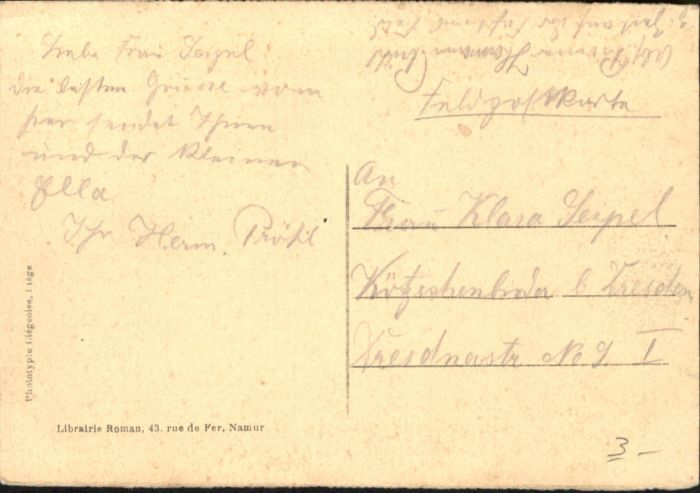 Liebe Frau Seipel
die besten Grüsse vom
hier sendet Ihnen
und der Kleinen
Ella
Ihr Herm. Prößl
Feldpostkarte
An
Frau Klara Seipel
Kötzschenbroda b. Dresden
Dresdnerstr No 9 I
Phototypie Liégeoise, Liége
Librairie Roman, 43, rue de Fer, Namur
3 -